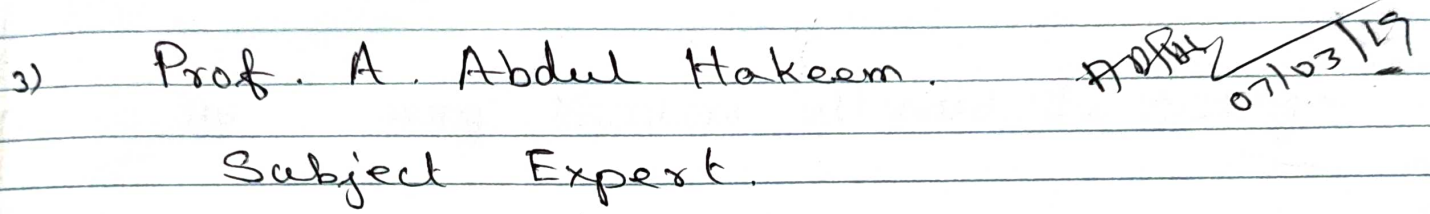 3) Prof. A. Abdul Hakeem. 07/03/19
Subject Expert.